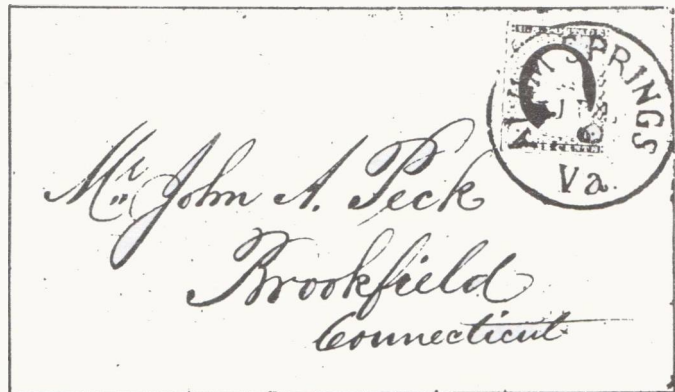 ALUM SPRINGS
Va.
Mr. John A. Peck
Brookfield
Connecticut